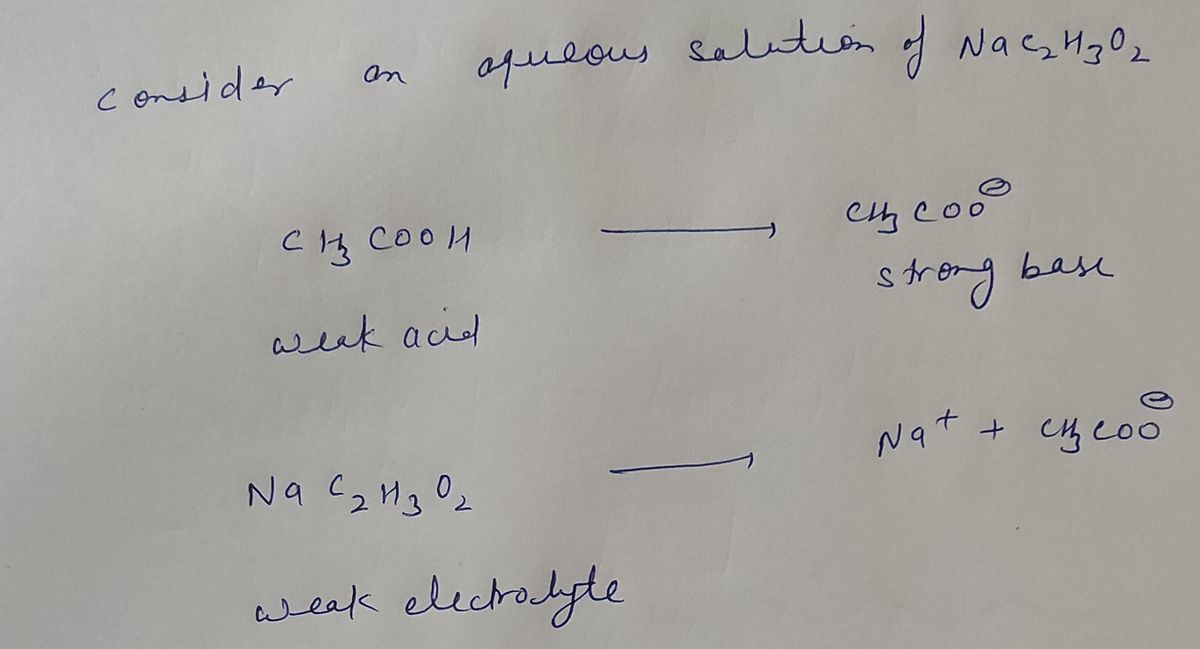 consider an aqueous salution of NaC₂H₃O₂
CH₃COOH ⟶ CH₃COO⊖
weak acid strong base
NaC₂H₃O₂ ⟶ Na⁺ + CH₃COO⊖
weak electrolyte